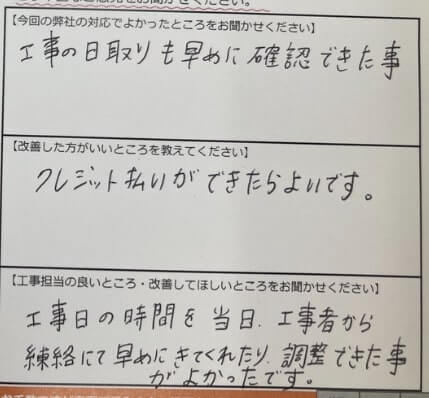 お聞かせください。
【今回の弊社の対応でよかったところをお聞かせください】
工事の日取りも早めに確認できた事
【改善した方がいいところを教えてください】
クレジット払いができたらよいです。
【工事担当の良いところ・改善してほしいところをお聞かせください】
工事日の時間を当日、工事者から
練絡にて早めにきてくれたり、調整できた事
がよかったです。